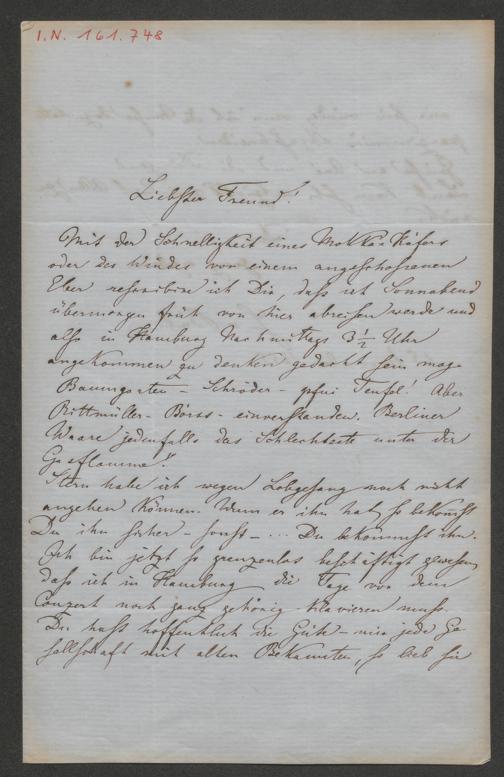 I.N. 161.748
Liebster Freund!
Mit der Schnelligkeit eines Mokka-Käfers
oder des Windes von einem angeschossenen
Eber rescribire ich Dir, daß ich Sonnabend
übermorgen früh von hier abreisen werde und
also in Hamburg Nachmittags 3 1/2 Uhr
angekommen zu denken gedacht sein mag.
Baumgarten - Schröder - pfui Teufel! Aber
Rittmüller - Börss - einverstanden. Berliner
Waare jedenfalls das Schlechteste unter der
Stern habe ich wegen Lobgesang noch nicht
angehen können. Wenn er ihn hat, so bekommst
Du ihn sicher - sonst - ... Du bekommst ihn.
Ich bin jetzt so grenzenlos beschäftigt gewesen,
daß ich in Hamburg die Tage vor dem
Conzert noch ganz gehörig klavieren muß.
Du hast hoffentlich die Güte - mir jede Ge-
sellschaft mit alten Bekannten, so lieb sie